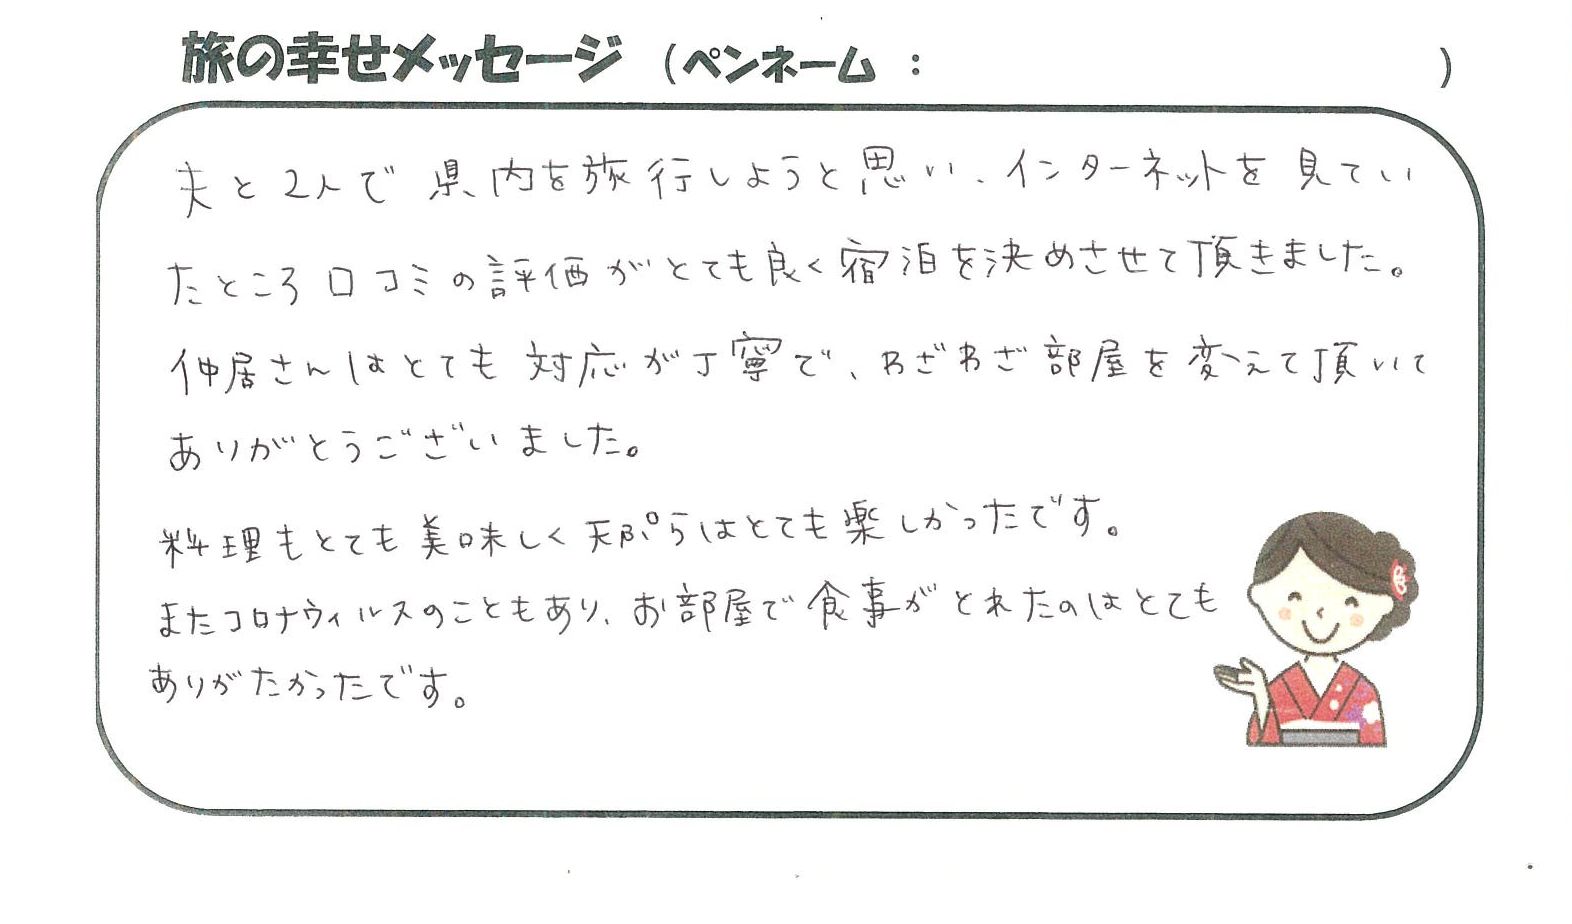 旅の幸せメッセージ (ペンネーム : )
夫と2人で県内を旅行しようと思い、インターネットを見てい
たところ口コミの評価がとても良く宿泊を決めさせて頂きました。
仲居さんはとても対応が丁寧で、わざわざ部屋を変えて頂いて
ありがとうございました。
料理もとても美味しく天ぷらはとても楽しかったです。
またコロナウィルスのこともあり、お部屋で食事がとれたのはとても
ありがたかったです。